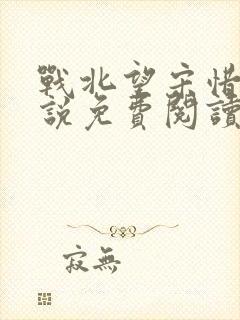 戰北望宋惜
說免費閱讀
寂無